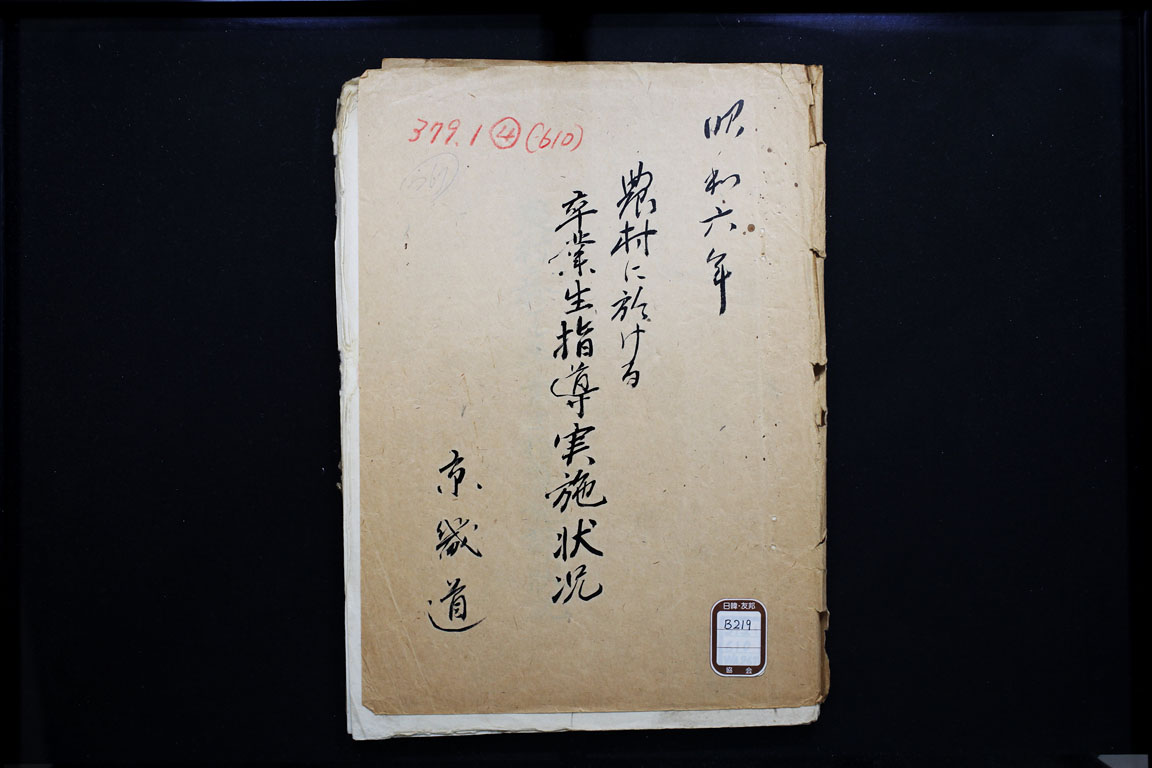 379.1 ④ (610)
昭和六年
農村に於ける
卒業生指導実施状況
京畿道
日韓・友邦
B219
協会